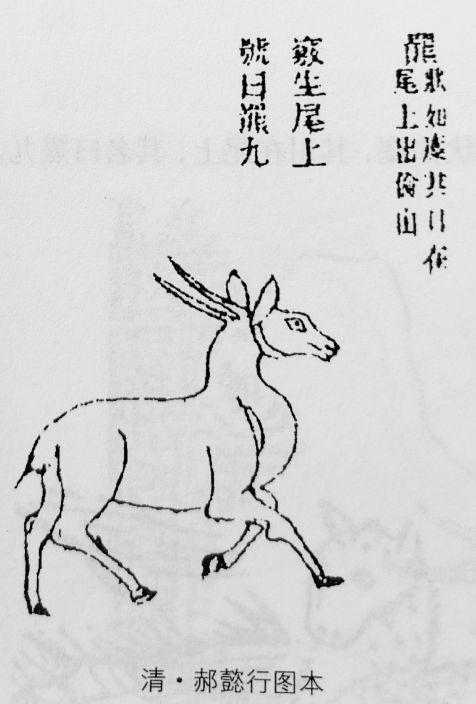 羆
狀如麋其川在
尾上出倫山
竅生尾上
號曰羆九
清·郝懿行图本